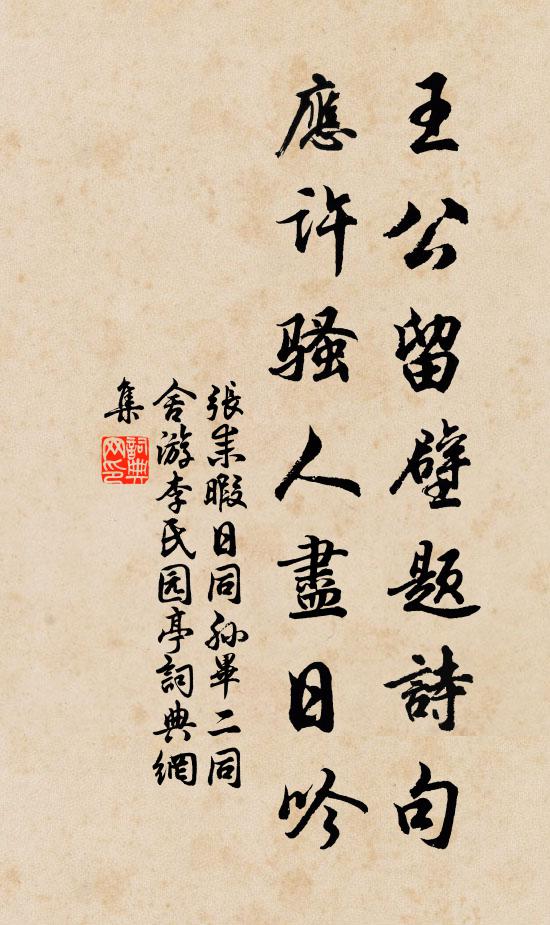 王公留壁题詩句
應許騷人盡日吟
張耒暇日同孫畢二同
舍游李氏园亭詞典網
集
詞典网印